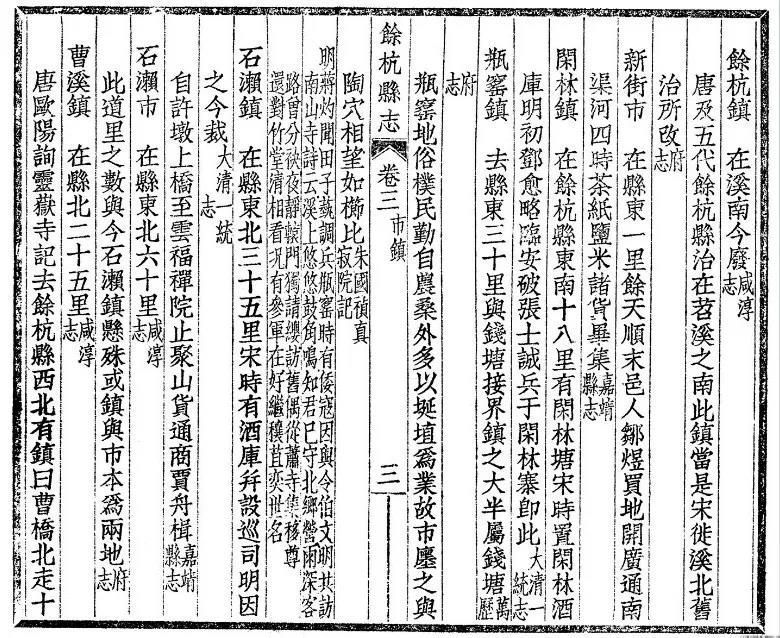 餘杭鎮　在溪南今廢咸淳志
唐及五代餘杭縣治在苕溪之南此鎮當是宋徙溪北舊
治所改府志
新街市　在縣東一里餘天順末邑人鄒煜買地開廣通南
渠河四時茶紙鹽米諸貨畢集嘉靖縣志
閑林鎮　在餘杭縣東南十八里有閑林塘宋時置閑林酒
庫明初鄧愈略臨安破張士誠兵于閑林寨卽此大清一統志
瓶窰鎮　去縣東三十里與錢塘接界鎮之大半屬錢塘萬歷
府志
瓶窰地俗樸民勤自農桑外多以埏埴爲業故市廛之與
餘杭縣志　卷三市鎮　三
陶穴相望如櫛比朱國禎真寂院記
明蔣灼聞田子藝調兵瓶窰時有倭寇因與令伯文明共訪
南山寺詩云溪上悠悠鼓角鳴知君已守北鄉營雨深客
路曾分袂夜靜轅門獨請纓訪舊偶從蕭寺集移尊
還對竹堂清相看况有參軍在好繼穰苴奕世名
石瀨鎮　在縣東北三十五里宋時有酒庫幷設巡司明因
之今裁大清一統志
自許墩上橋至雲福禪院止聚山貨通商賈舟楫嘉靖縣志
石瀨市　在縣東北六十里咸淳志
此道里之數與今石瀨鎮懸殊或鎮與市本爲兩地府志
曹溪鎮　在縣北二十五里咸淳志
唐歐陽詢靈嶽寺記去餘杭縣西北有鎮曰曹橋北走十